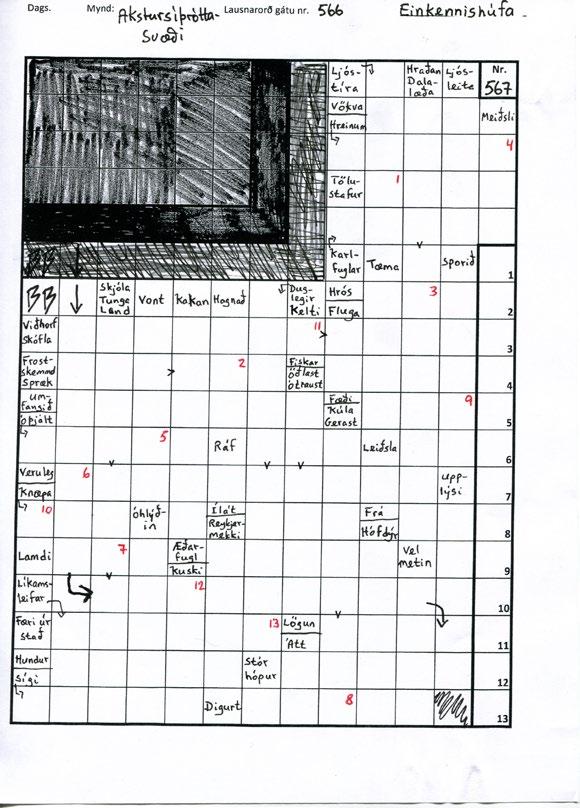 Dags. Mynd: Akstursíþrótta- Lausnarorð gátu nr. 566 Einkennishúfa.
Svæði
Ljós-
tíra
Hraðan
Dala-
læða
Ljós-
leita
Nr.
567
Vökva
Hreinum
Meiðsli
4
Tölu-
stafur
1
Karl-
fuglar
Tæma
Sporið
1
BB
Skjóla
Tunga
Land
Vont
Kakan
Hagnað
Dug-
legir
Kelti
Hrós
Fluga
3
2
Viðhorf
Skófla
11
3
Frost-
skemmd
Spræk
2
Fiskar
Öðlast
Ótraust
4
Um-
fangið
Óþjált
Fæði
Kúla
Gerast
9
5
5
Ráf
Leiðsla
6
Veruleg
6
Knæpa
Upp-
lýsi
7
10
Óhlýð-
in
Ílát
Reykjar-
mekki
Frá
Höfðýr
8
Lamdi
7
Æðar-
fugl
Kuski
Vel
metin
9
Líkams-
leifar
12
10
Færi úr
stað
13
Lögun
Átt
11
Hundur
Sígi
Stór
hópur
12
Digurt
8
13